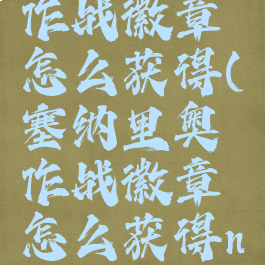 作战徽章
怎么获得(
塞纳里奥
作战徽章
怎么获得n